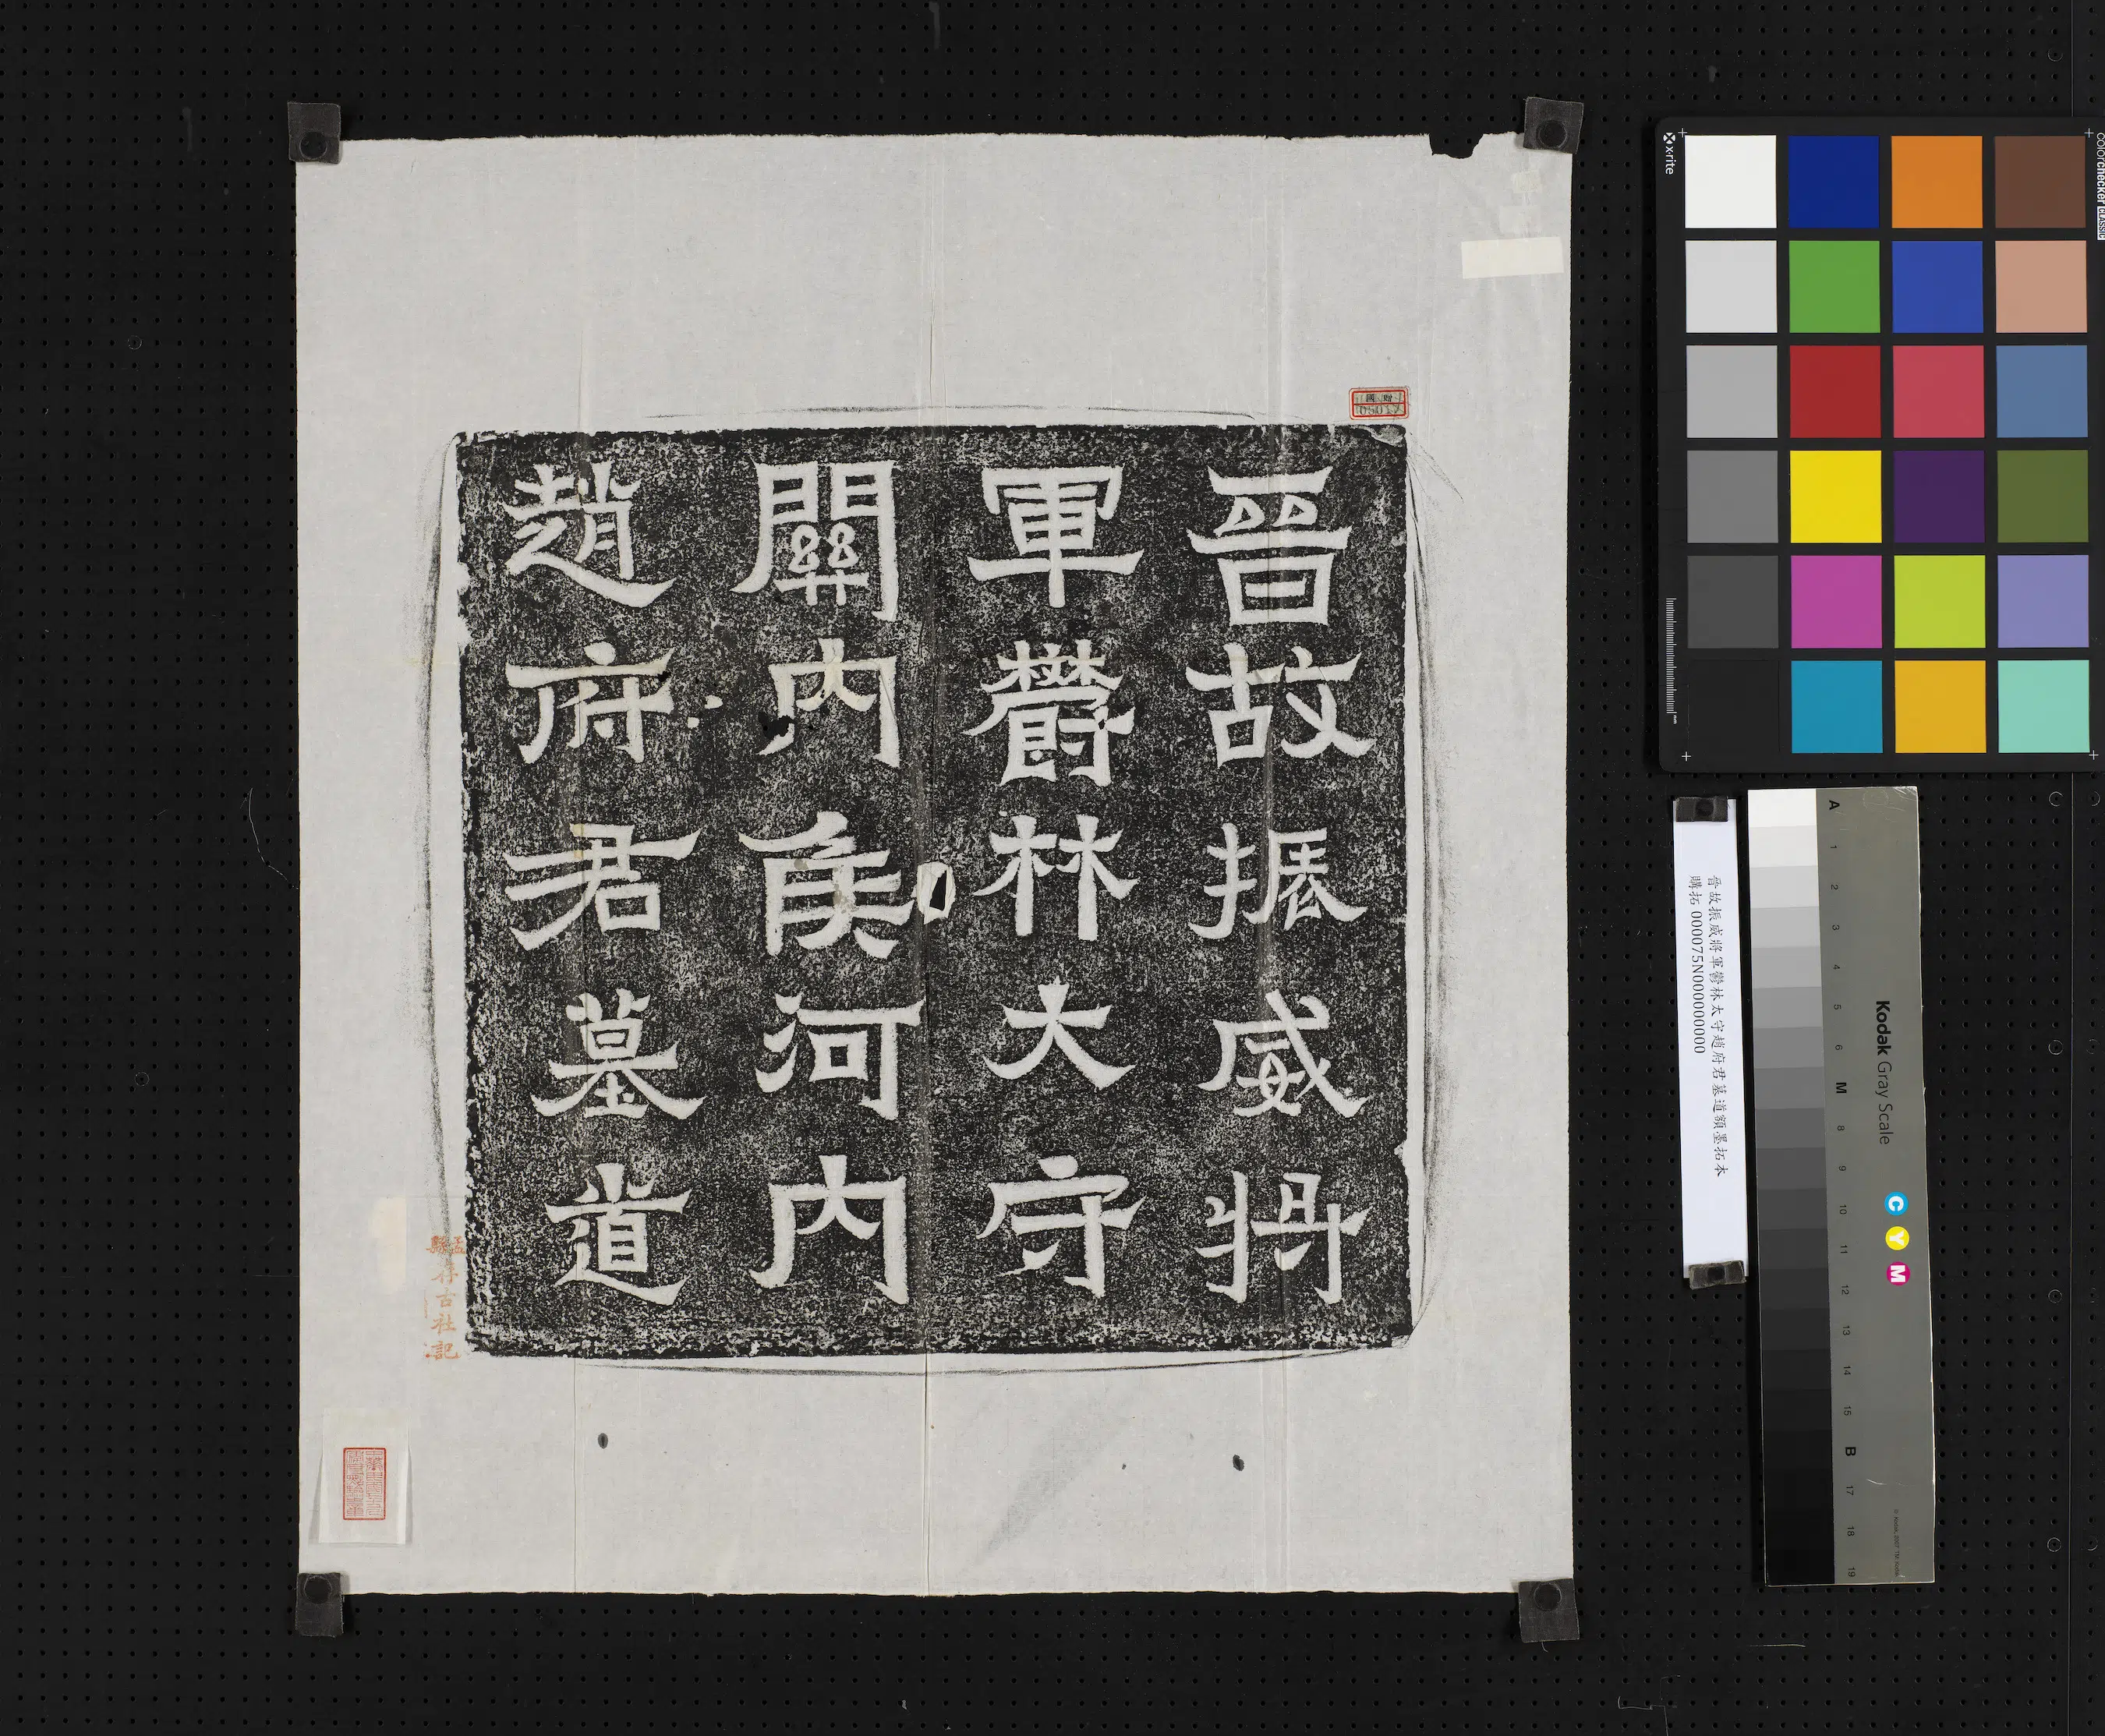 晉故振威将
軍鬱林大守
關內矦河內
趙府君墓道
孟縣存古社記
晉故振威將軍鬱林太守趙府君墓道額墨拓本
購拓000075N000000000
x-rite
colorchecker CLASSIC
mm
Kodak Gray Scale
C Y M
A 1 2 3 4 5 6 M 8 9 10 11 12 13 14 15 B 17 18 19